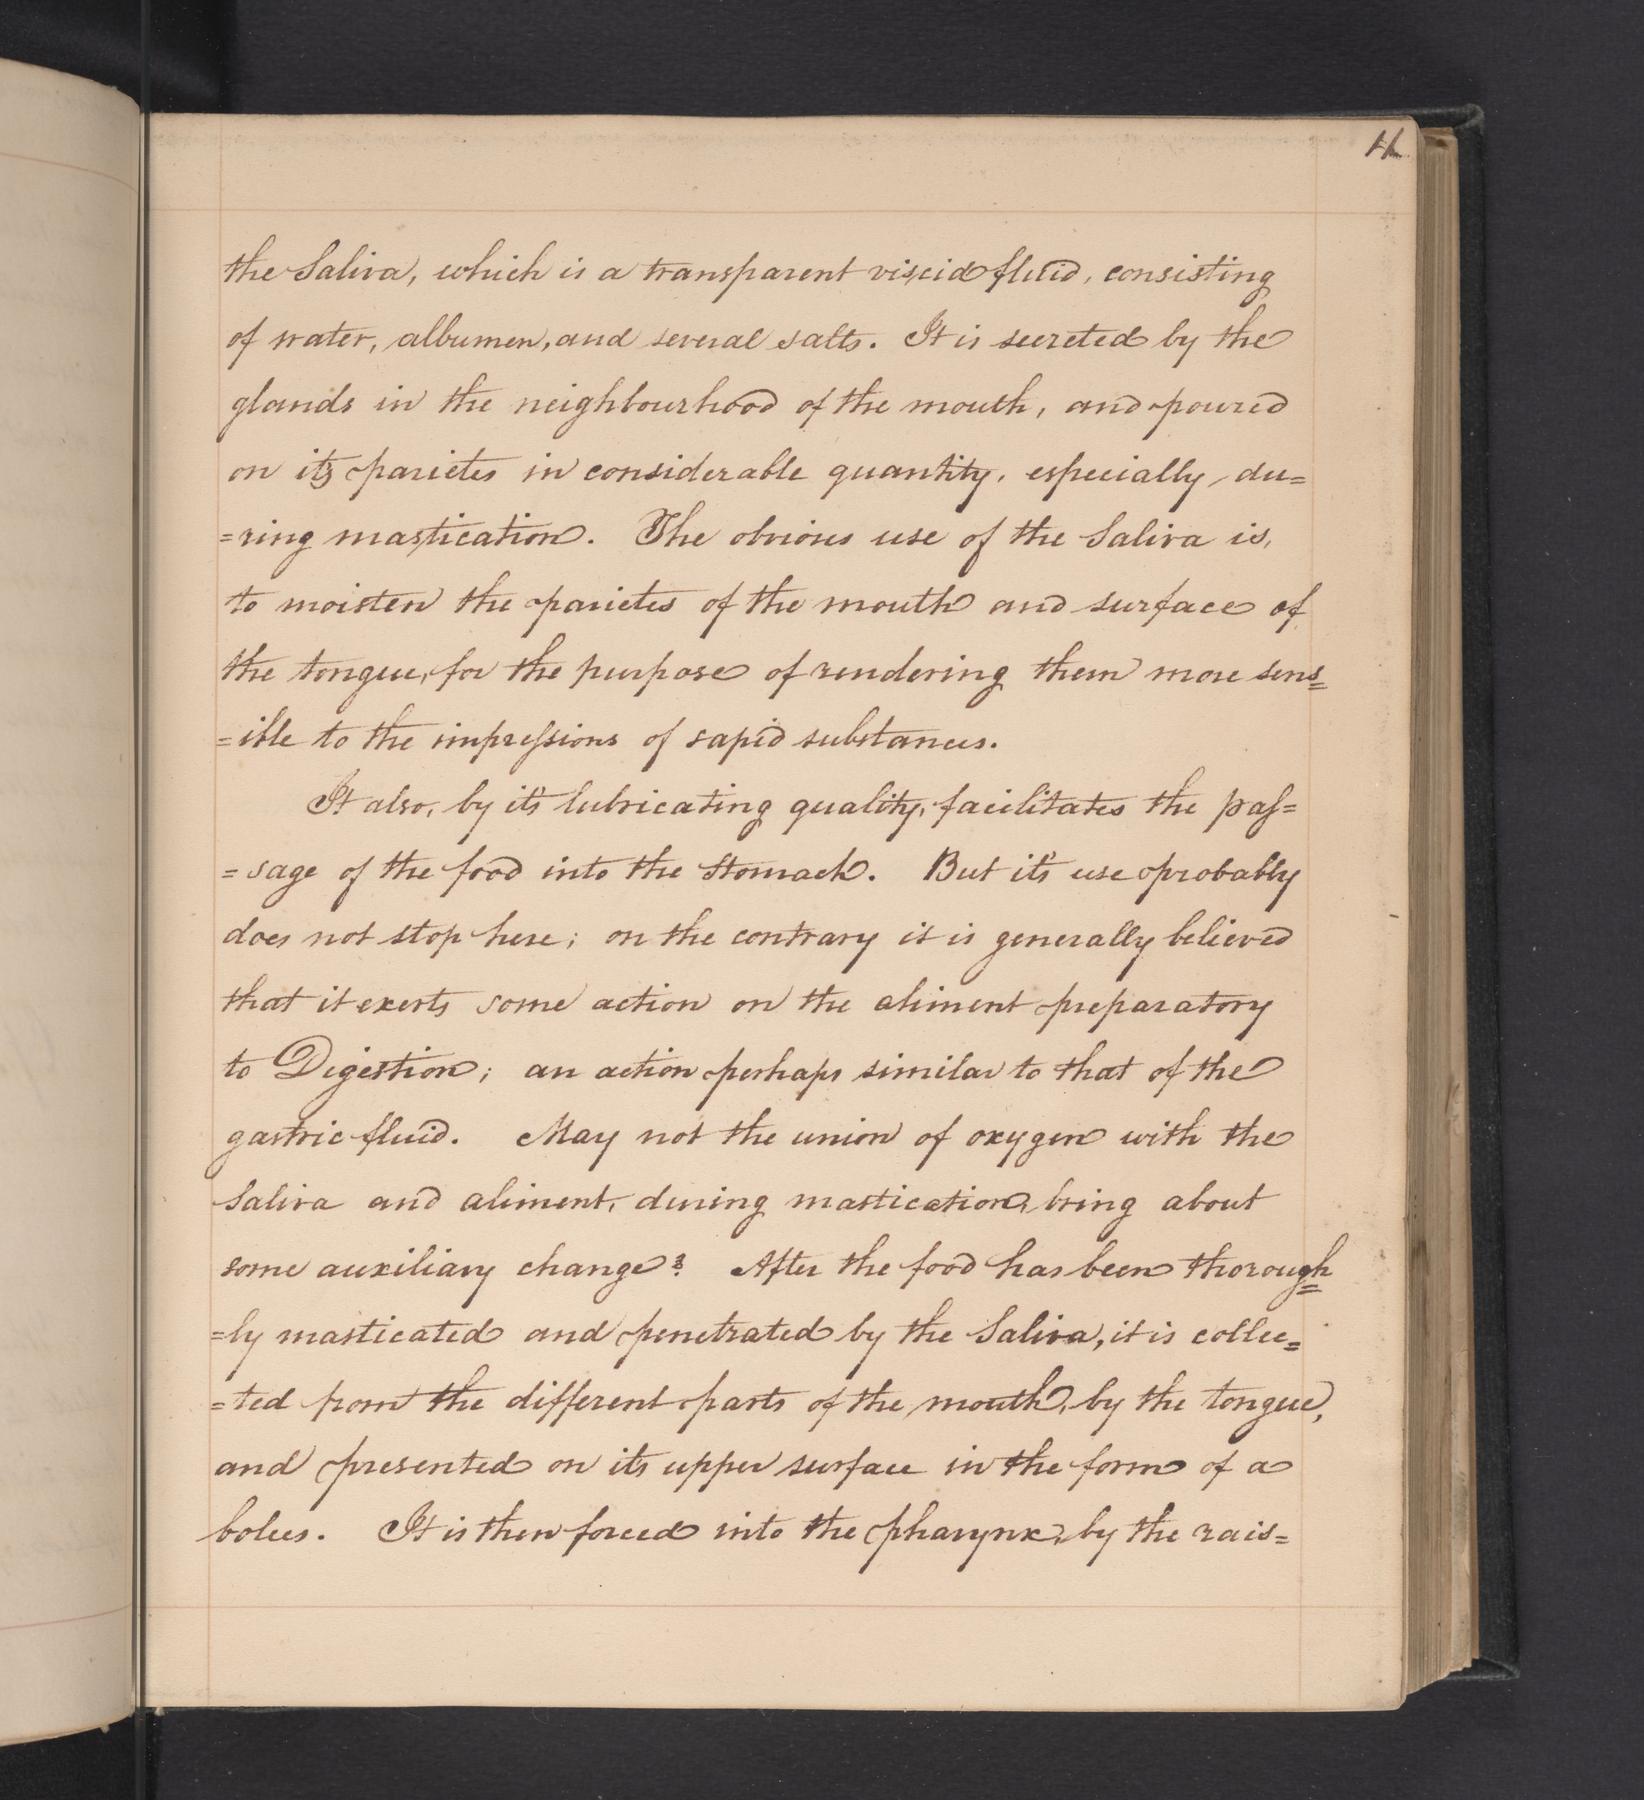 11
the Saliva, which is a transparent viscid fluid, consisting
of water, albumen, and several salts. It is secreted by the
glands in the neighbourhood of the mouth, and poured
on its parietes in considerable quantity, especially du=
=ring mastication. The obvious use of the Saliva is,
to moisten the parietes of the mouth and surface of
the tongue, for the purpose of rendering them more sens=
=ible to the impreſsions of sapid substances.
It also, by it's lubricating quality, facilitates the paſ=
=sage of the food into the Stomach. But it's use probably
does not stop here; on the contrary it is generally believed
that it exerts some action on the aliment preparatory
to Digestion; an action perhaps similar to that of the
gastric fluid. May not the union of oxygen with the
Saliva and aliment, during mastication, bring about
some auxiliary change? After the food has been thorough=
=ly masticated and penetrated by the Saliva, it is collec=
=ted from the different parts of the mouth, by the tongue,
and presented on its upper surface in the form of a
bolus. It is then forced into the pharynx, by the rais=